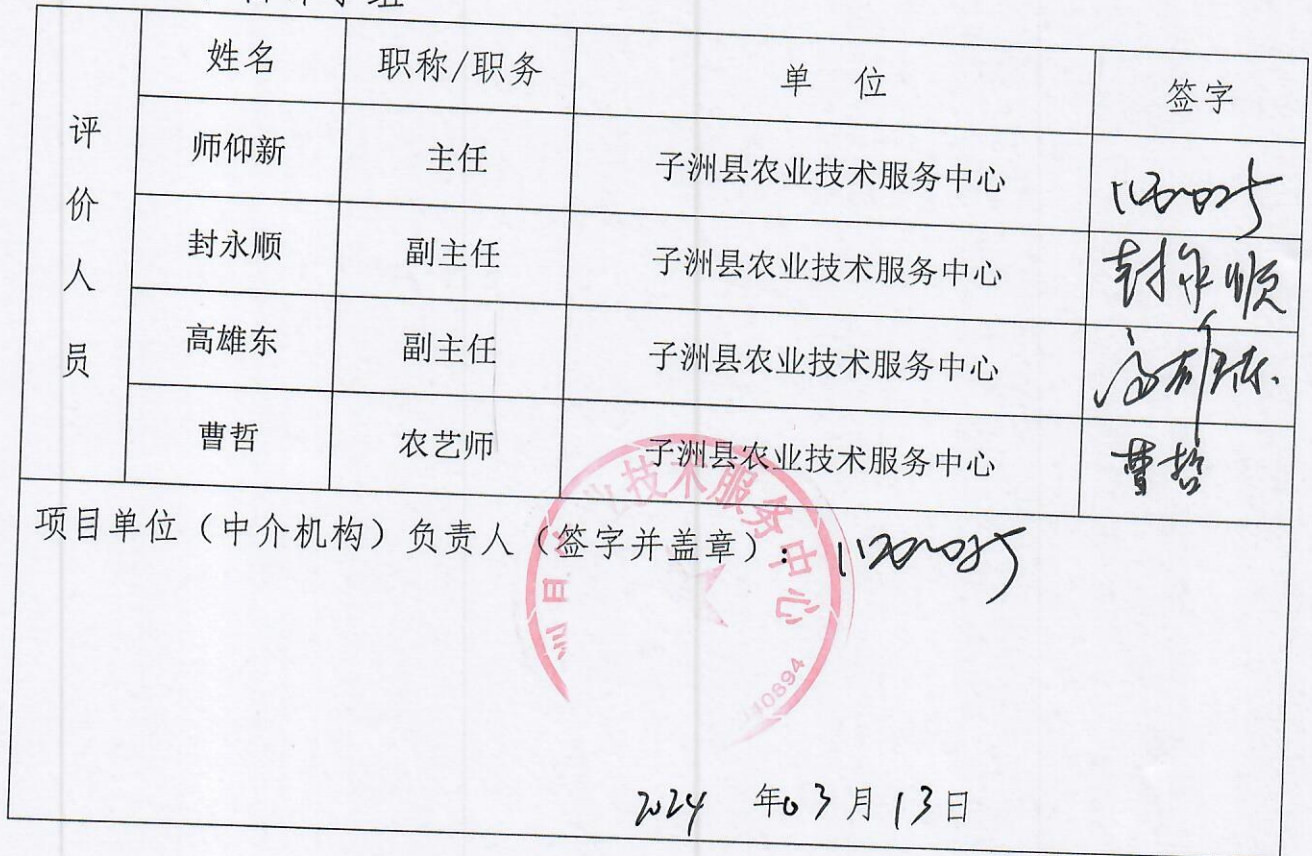 姓名 职称/职务 单 位 签字
评价人员
师仰新 主任 子洲县农业技术服务中心
封永顺 副主任 子洲县农业技术服务中心 封永顺
高雄东 副主任 子洲县农业技术服务中心 高雄东
曹哲 农艺师 子洲县农业技术服务中心 曹哲
项目单位（中介机构）负责人（签字并盖章）：
业技术服务中心
10894
2024 年03月13日